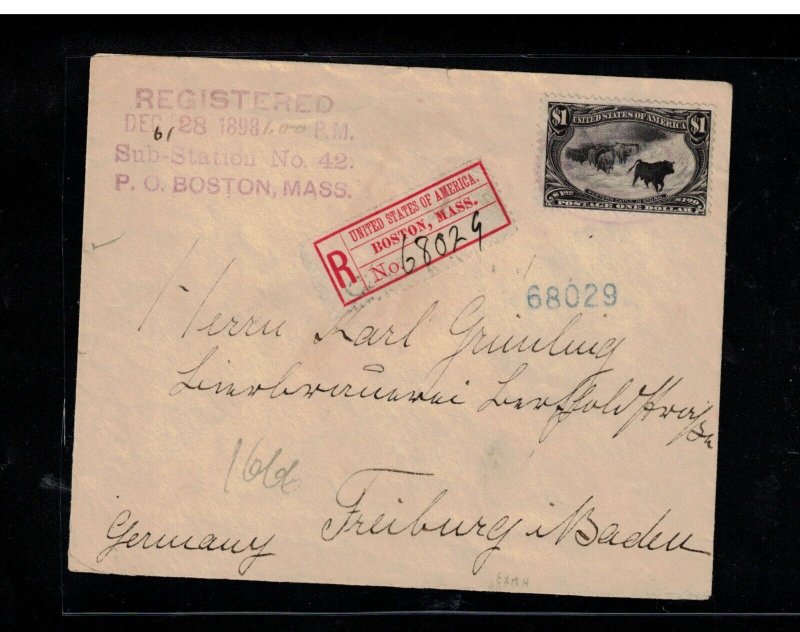 REGISTERED
DEC 28 1898 1.00 P.M.
61
Sub-Station No. 42.
P. O. BOSTON, MASS.
$1 UNITED STATES OF AMERICA $1
POSTAGE ONE DOLLAR
UNITED STATES OF AMERICA.
BOSTON, MASS.
R No. 68029
68029
Herrn Karl Grünling
Bierbrauerei Bertholdstraße
Freiburg i Baden
Germany
EXMH